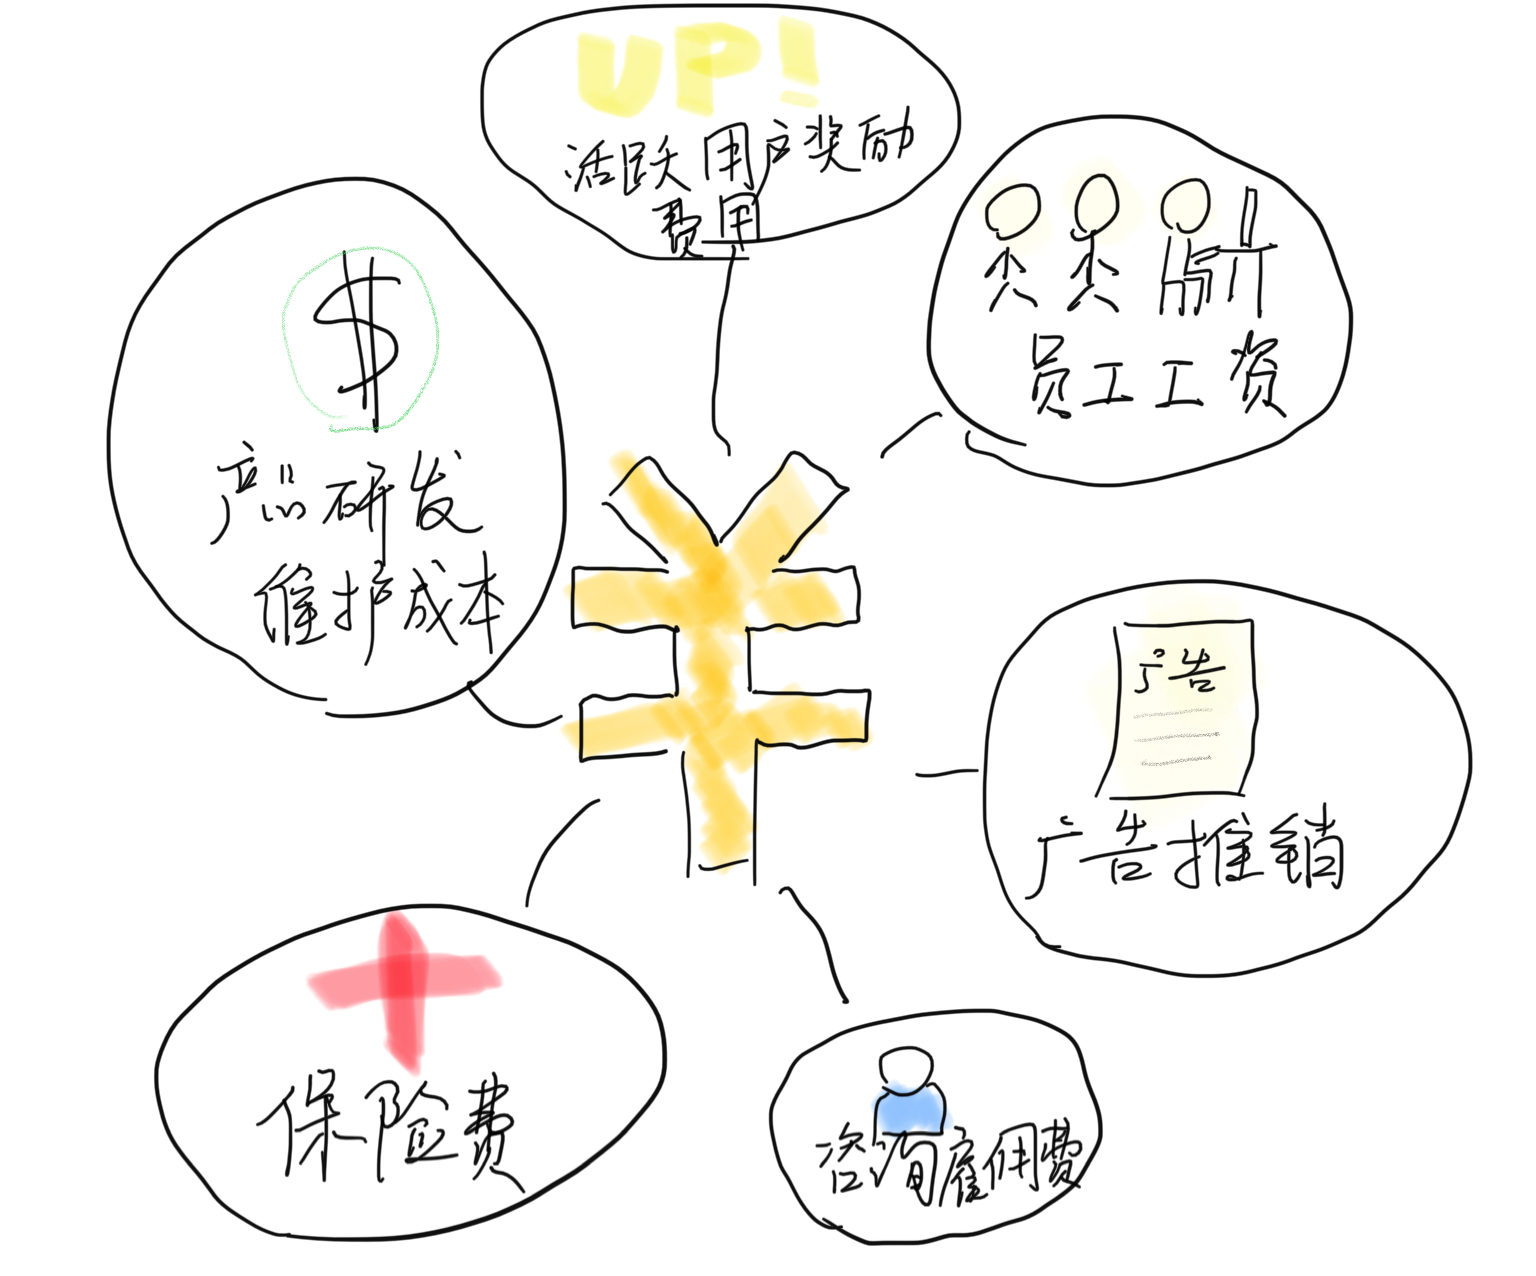 UP!
活跃用户奖励
费用
员工工资
$
产品研发
维护成本
¥
广告
广告推销
保险费
咨询雇佣费